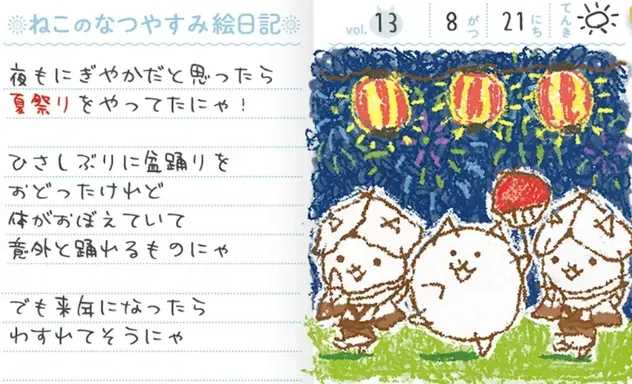 ねこのなつやすみ絵日記
vol. 13
8 がつ 21 にち てんき
夜もにぎやかだと思ったら
夏祭りをやってたにゃ！
ひさしぶりに盆踊りを
おどったけれど
体がおぼえていて
意外と踊れるものにゃ
でも来年になったら
わすれてそうにゃ